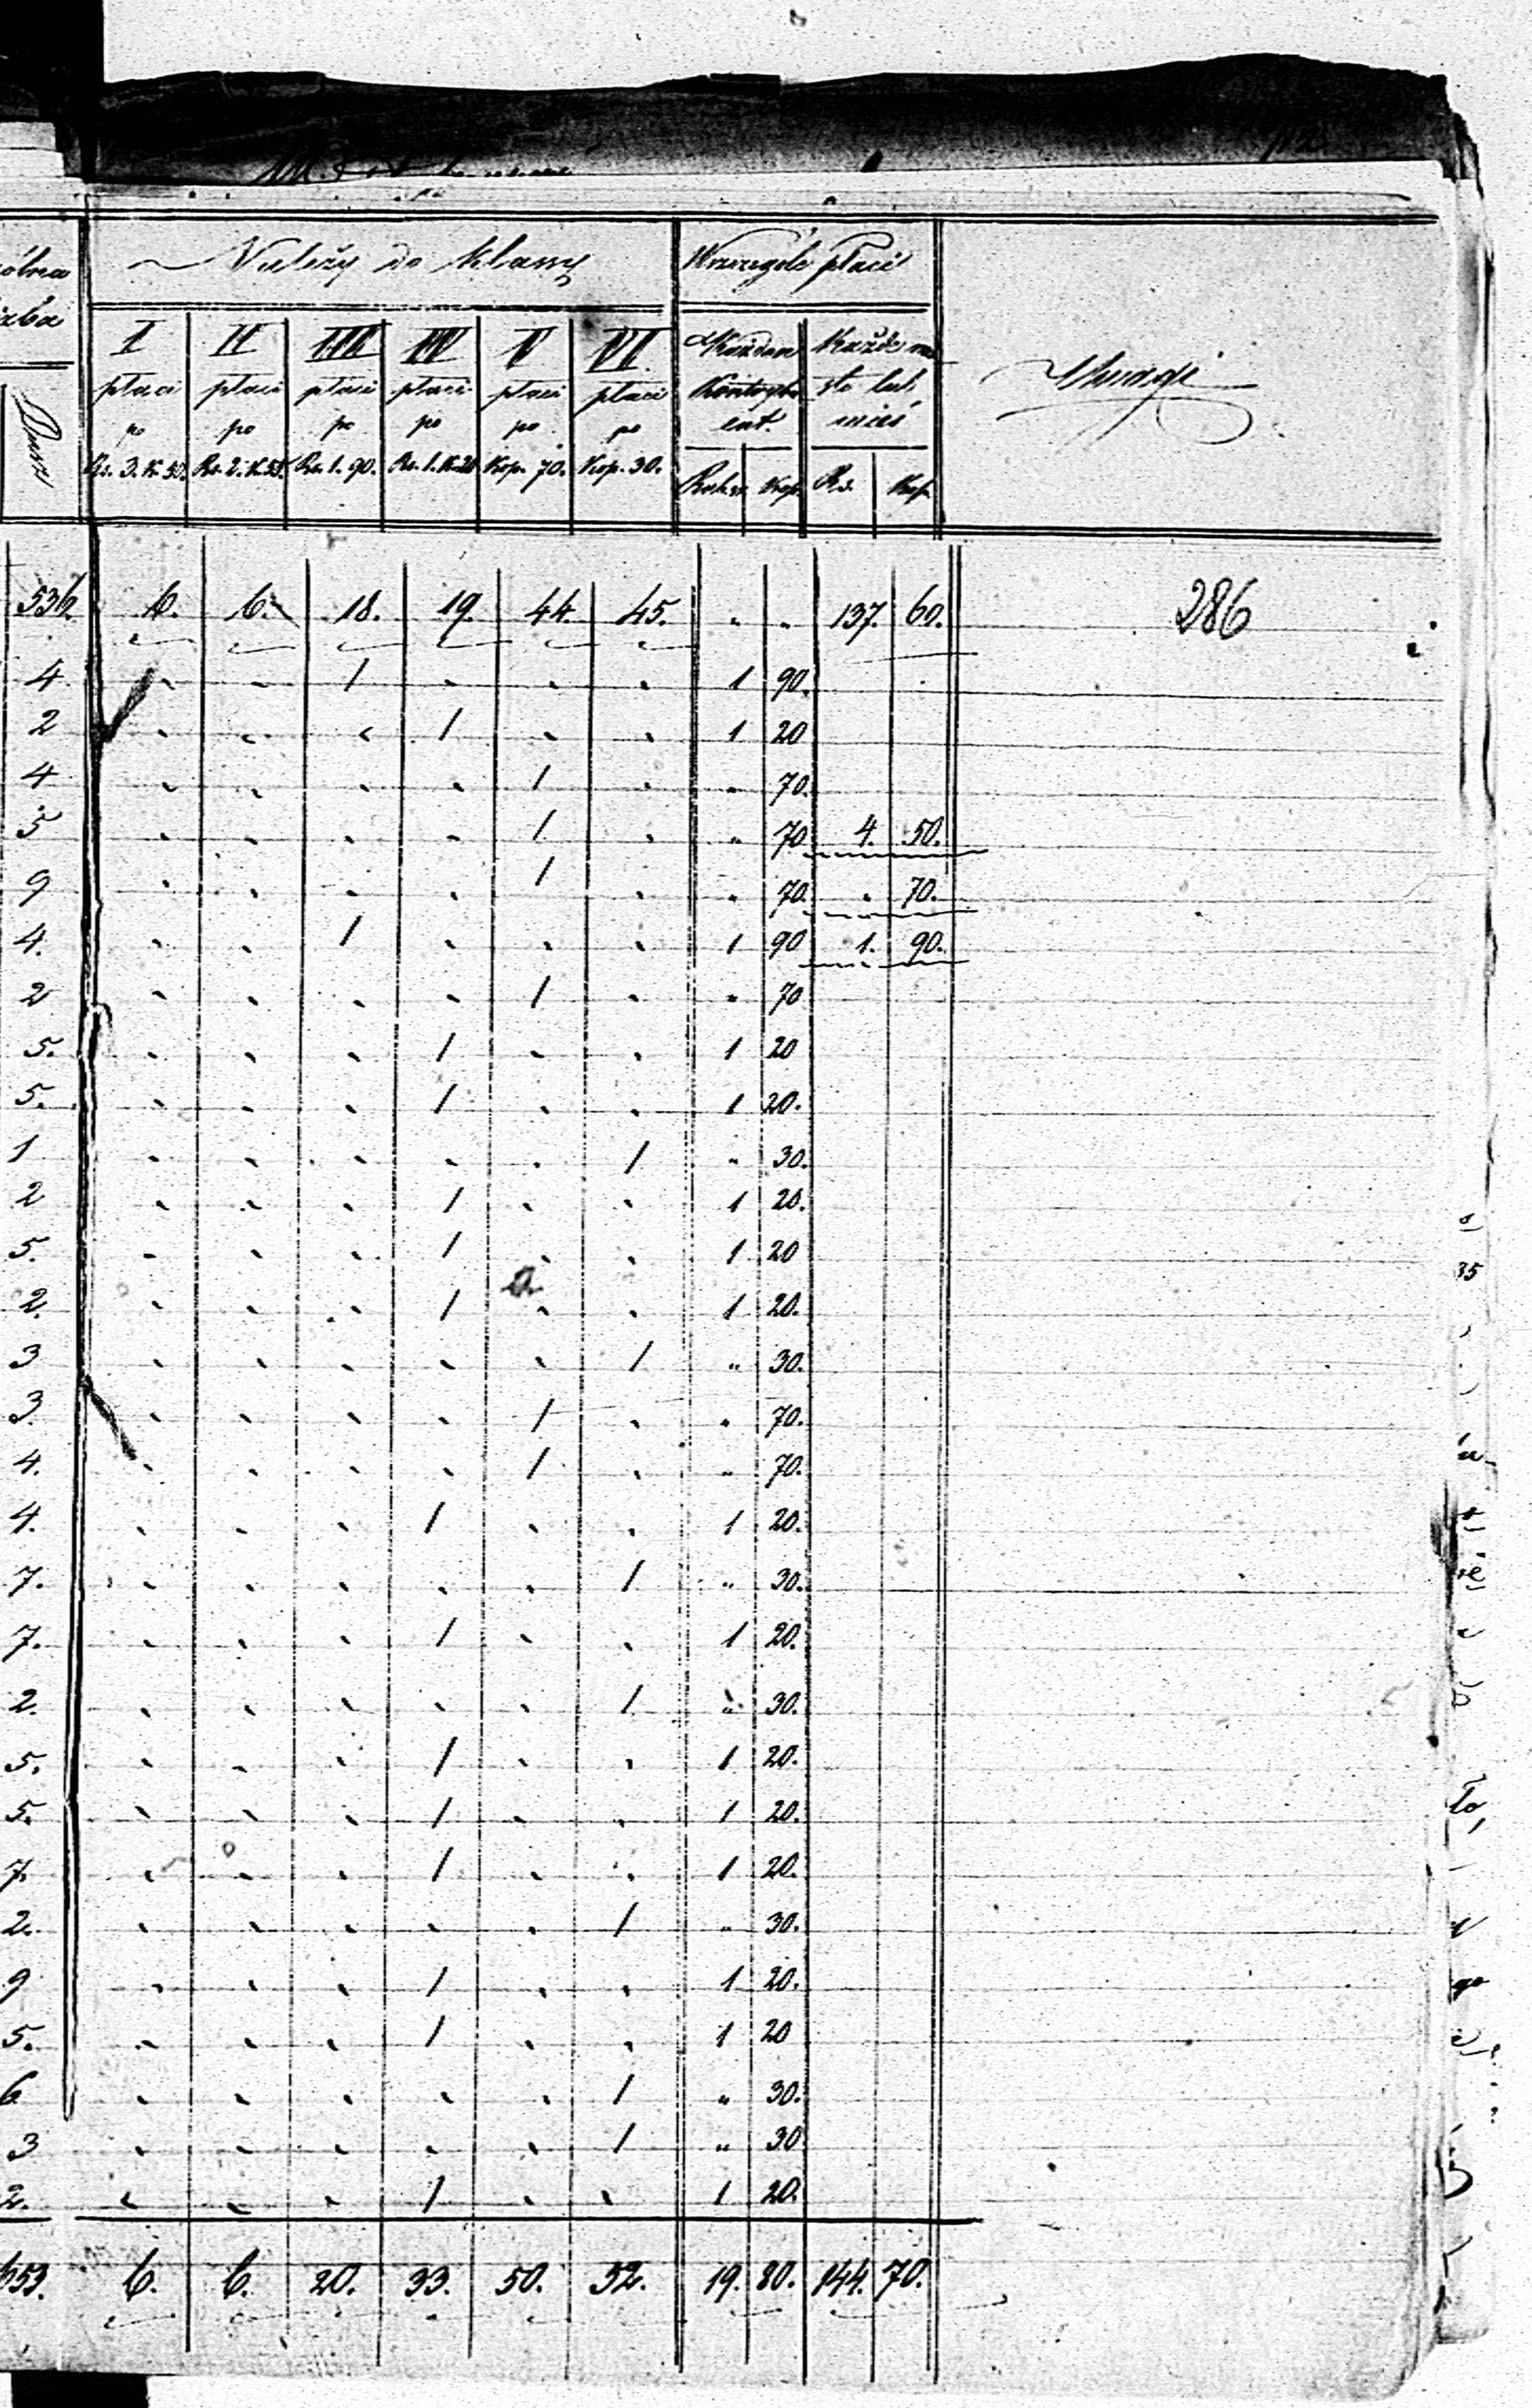 Należy do klassy
Wszczególe płaci
ólna
zba
Dusz
I II III IV V VI.
płaci płaci płaci płaci płaci płaci
po po po po po po
Rs. 3. K. 50. Rs. 2. K. 55. Rs. 1. 90. Rs. 1. K. 20 Kop. 70. Kop. 30.
Każden Kontrybuent.
Każde miasto lub wieś
Rubsr. Kop. Rs. Kop.
Uwagi
536. 6. 6. 18. 19. 44. 45. " " 137. 60. 286
4 " " 1 " " " 1 90.
2 " " " 1 " " 1 20
4 " " " " 1 " " 70.
5 " " " " 1 " " 70 4. 50.
9 " " " " 1 " " 70. " 70.
4. " " 1 " " " 1 90 1. 90.
2 " " " " 1 " " 70
5. " " " 1 " " 1 20
5. " " " 1 " " 1 20.
1 " " " " " 1 " 30.
2 " " " 1 " " 1 20.
5. " " " 1 " " 1 20
2. " " " 1 " " 1 20.
3 " " " " " 1 " 30.
3. " " " " 1 " " 70.
4. " " " " 1 " " 70.
4. " " " 1 " " 1 20.
7. " " " " " 1 " 30.
7. " " " 1 " " 1 20.
2. " " " " " 1 " 30.
5. " " " 1 " " 1 20.
5. " " " 1 " " 1 20.
7. " " " 1 " " 1 20.
2. " " " " " 1 " 30.
9 " " " 1 " " 1 20.
5. " " " 1 " " 1 20
6 " " " " " 1 " 30.
3 " " " " " 1 " 30
2. " " " 1 " " 1 20.
653. 6. 6. 20. 33. 50. 52. 19. 80. 144. 70.